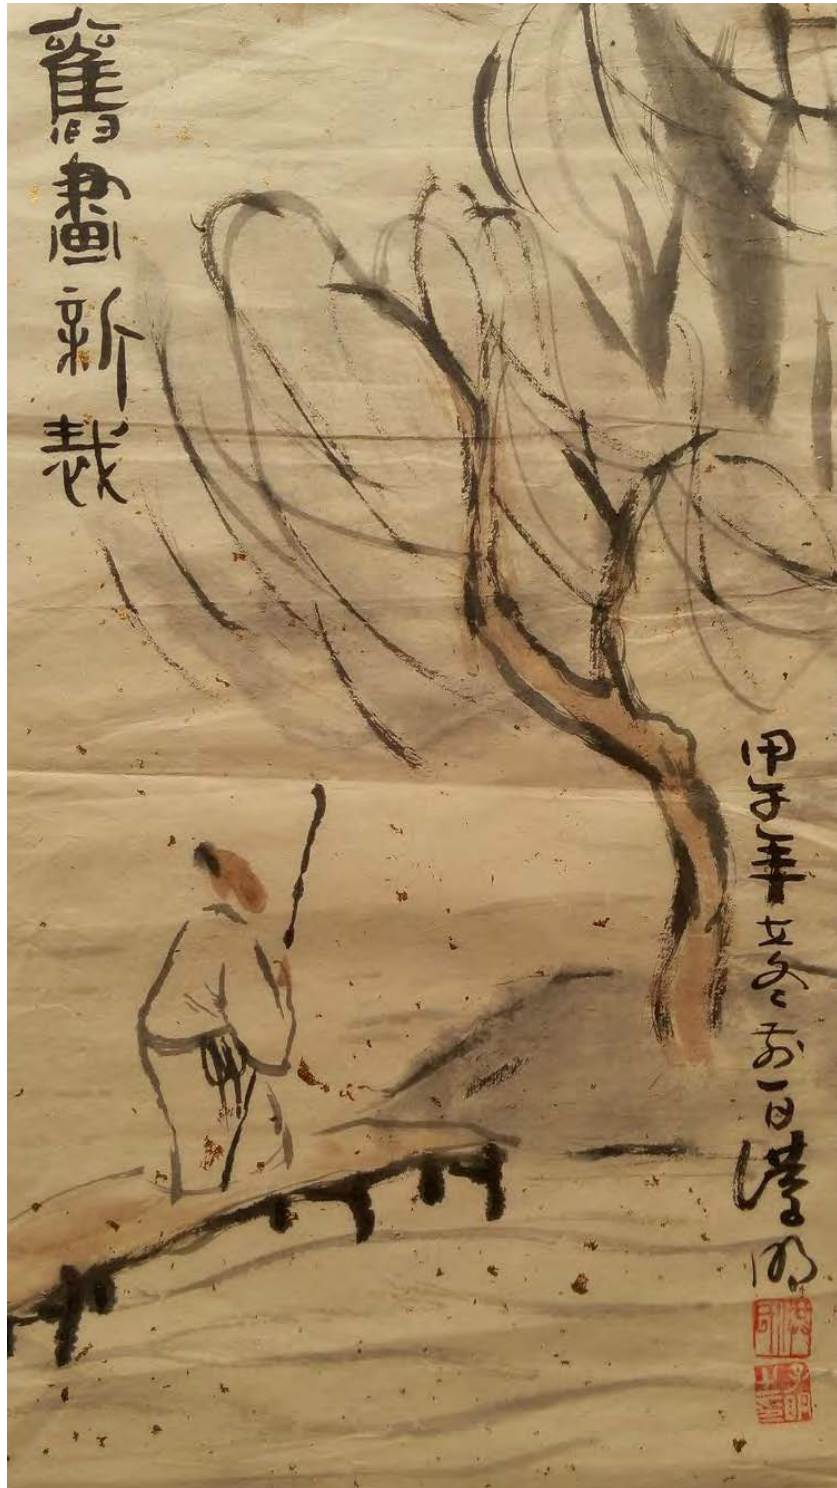 舊畫新裁
甲午年立冬前一日漢明